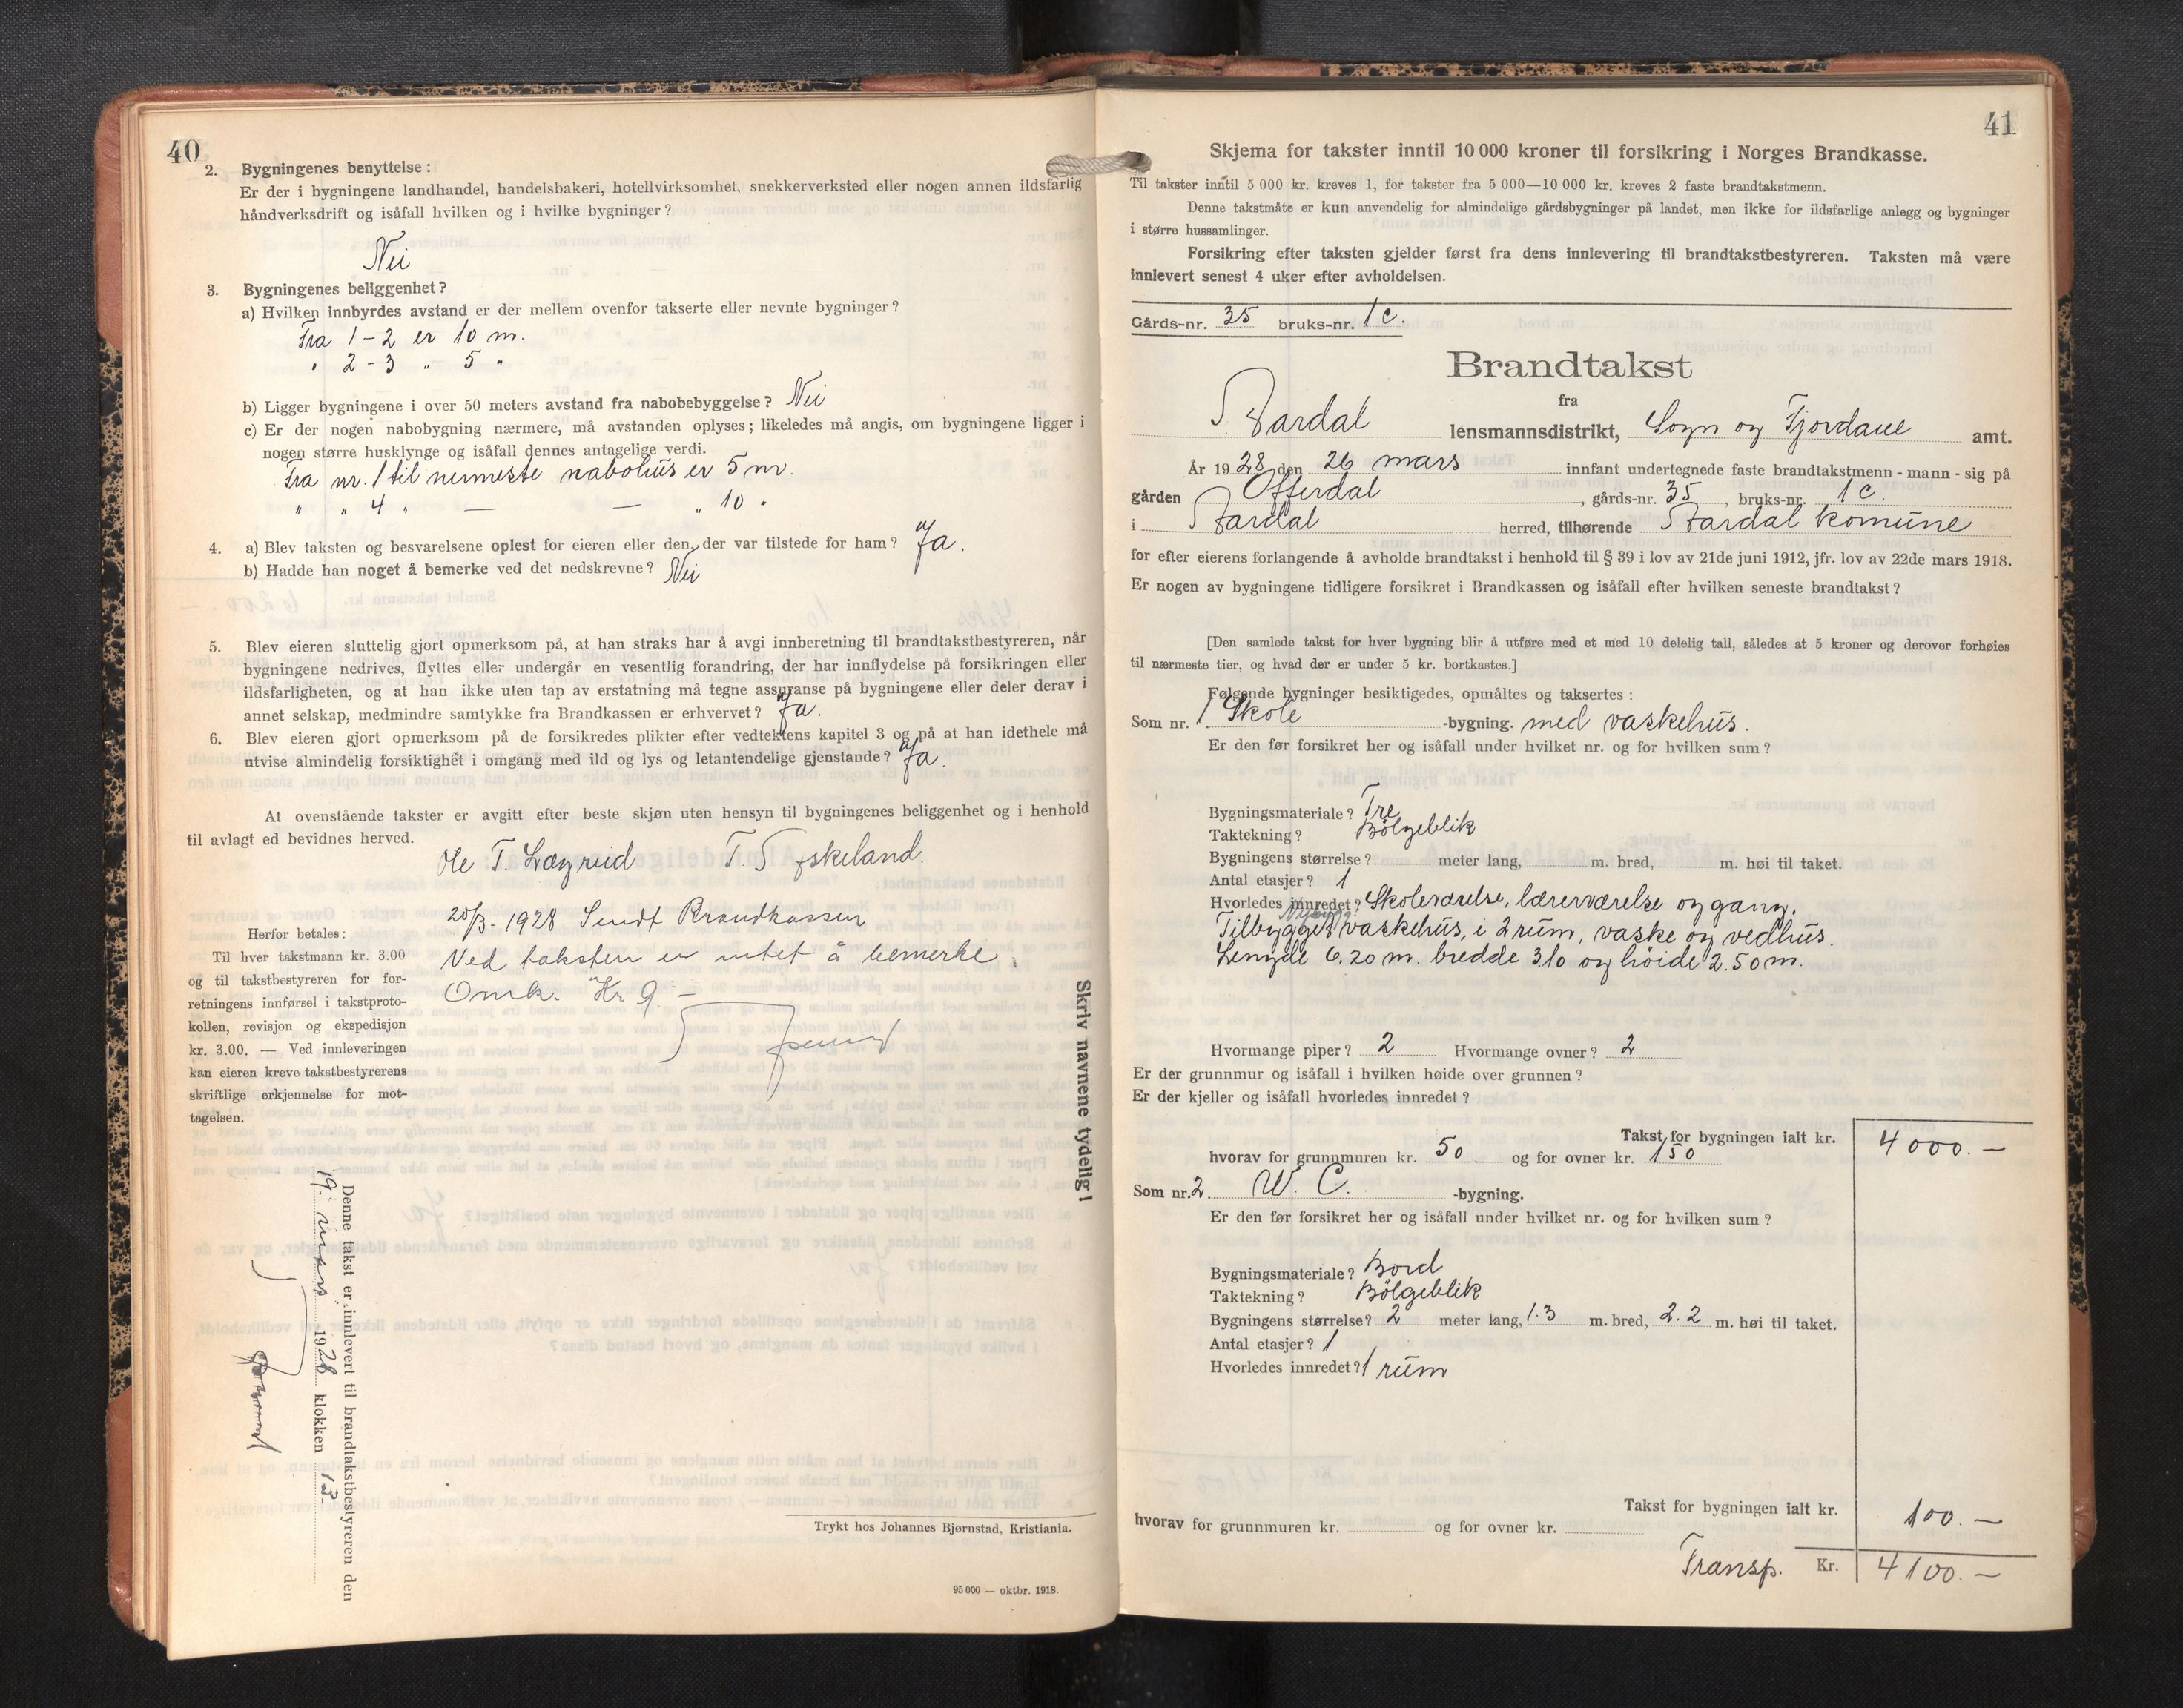 40
2. Bygningenes benyttelse :
Er der i bygningene landhandel, handelsbakeri, hotellvirksomhet, snekkerverksted eller nogen annen ildsfarlig
håndverksdrift og isåfall hvilken og i hvilke bygninger ?
Nei
3. Bygningenes beliggenhet ?
a) Hvilken innbyrdes avstand er der mellem ovenfor takserte eller nevnte bygninger ?
Fra 1 - 2 er 10 m.
" 2 - 3 " 5 "
b) Ligger bygningene i over 50 meters avstand fra nabobebyggelse ? Nei
c) Er der nogen nabobygning nærmere, må avstanden oplyses ; likeledes må angis, om bygningene ligger i
nogen større husklynge og isåfall dennes antagelige verdi.
Fra nr. 1 til nermeste nabohus er 5 m.
" " 4 " — — " 10 "
4. a) Blev taksten og besvarelsene oplest for eieren eller den, der var tilstede for ham ? Ja.
b) Hadde han noget å bemerke ved det nedskrevne ? Nei
5. Blev eieren sluttelig gjort opmerksom på, at han straks har å avgi innberetning til brandtakstbestyreren, når
bygningene nedrives, flyttes eller undergår en vesentlig forandring, der har innflydelse på forsikringen eller
ildsfarligheten, og at han ikke uten tap av erstatning må tegne assuranse på bygningene eller deler derav i
annet selskap, medmindre samtykke fra Brandkassen er erhvervet ? Ja.
6. Blev eieren gjort opmerksom på de forsikredes plikter efter vedtektens kapitel 3 og på at han idethele må
utvise almindelig forsiktighet i omgang med ild og lys og letantendelige gjenstande ? Ja.
At ovenstående takster er avgitt efter beste skjøn uten hensyn til bygningenes beliggenhet og i henhold
til avlagt ed bevidnes herved.
Ole T. Lægreid T. S. Eskeland.
20/3 - 1928 Sendt Brandkassen
Ved taksten er intet å bemerke.
Omk. Kr 9. -
Herfor betales :
Til hver takstmann kr. 3.00
og til takstbestyreren for for-
retningens innførsel i takstproto-
kollen, revisjon og ekspedisjon
kr. 3.00. — Ved innleveringen
kan eieren kreve takstbestyrerens
skriftlige erkjennelse for mot-
tagelsen.
Skriv navnene tydelig !
Denne takst er innlevert til brandtakstbestyreren den
19. mars 1928 klokken 13.
Trykt hos Johannes Bjørnstad, Kristiania.
95 000 — oktbr. 1918.
41
Skjema for takster inntil 10 000 kroner til forsikring i Norges Brandkasse.
Til takster inntil 5 000 kr. kreves 1, for takster fra 5 000—10 000 kr. kreves 2 faste brandtakstmenn.
Denne takstmåte er kun anvendelig for almindelige gårdsbygninger på landet, men ikke for ildsfarlige anlegg og bygninger
i større hussamlinger.
Forsikring efter taksten gjelder først fra dens innlevering til brandtakstbestyreren. Taksten må være
innlevert senest 4 uker efter avholdelsen.
Gårds-nr. 35 bruks-nr. 1 c.
Brandtakst
fra
Årdal lensmannsdistrikt, Sogn og Fjordane amt.
År 1928 den 26 mars innfant undertegnede faste brandtakstmenn - mann - sig på
gården Offerdal, gårds-nr. 35, bruks-nr. 1 c.
i Årdal herred, tilhørende Årdal komune
for efter eierens forlangende å avholde brandtakst i henhold til § 39 i lov av 21de juni 1912, jfr. lov av 22de mars 1918.
Er nogen av bygningene tidligere forsikret i Brandkassen og isåfall efter hvilken seneste brandtakst ?
[Den samlede takst for hver bygning blir å utføre med et med 10 delelig tall, således at 5 kroner og derover forhøies
til nærmeste tier, og hvad der er under 5 kr. bortkastes.]
Følgende bygninger besiktigedes, opmåltes og taksertes :
Som nr. 1 Skole -bygning. med vaskehus.
Er den før forsikret her og isåfall under hvilket nr. og for hvilken sum ?
Bygningsmateriale ? Tre
Taktekning ? Bölgeblik
Bygningens størrelse ? meter lang, m. bred, m. høi til taket.
Antal etasjer ? 1
Hvorledes innredet ? Skoleværelse, lærerværelse og gang.
Tilbygget vaskehus, i 2 rum, vaske og vedhus.
Lengde 6.20 m. bredde 3.10 og höide 2.50 m.
Hvormange piper ? 2 Hvormange ovner ? 2
Er der grunnmur og isåfall i hvilken høide over grunnen ?
Er der kjeller og isåfall hvorledes innredet ?
Takst for bygningen ialt kr. 4000. —
hvorav for grunnmuren kr. 50 og for ovner kr. 150
Som nr. 2. W. C. -bygning.
Er den før forsikret her og isåfall under hvilket nr. og for hvilken sum ?
Bygningsmateriale ? Bord
Taktekning ? Bölgeblik
Bygningens størrelse ? 2 meter lang, 1.3 m. bred, 2.2 m. høi til taket.
Antal etasjer ? 1
Hvorledes innredet ? 1 rum
Takst for bygningen ialt kr. 100. —
hvorav for grunnmuren kr. og for ovner kr.
Transp. Kr. 4100. —